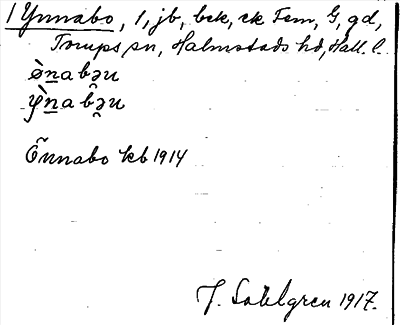 1 Ynnabo, 1, jb, bck, ck Fem, G, gd,
Trrups sn, Halmstads hd, Hall. l.
ø̀n̲abə̯u
ỳn̲abə̯u
Õnnabo kb 1914
J. Sahlgren 1917.